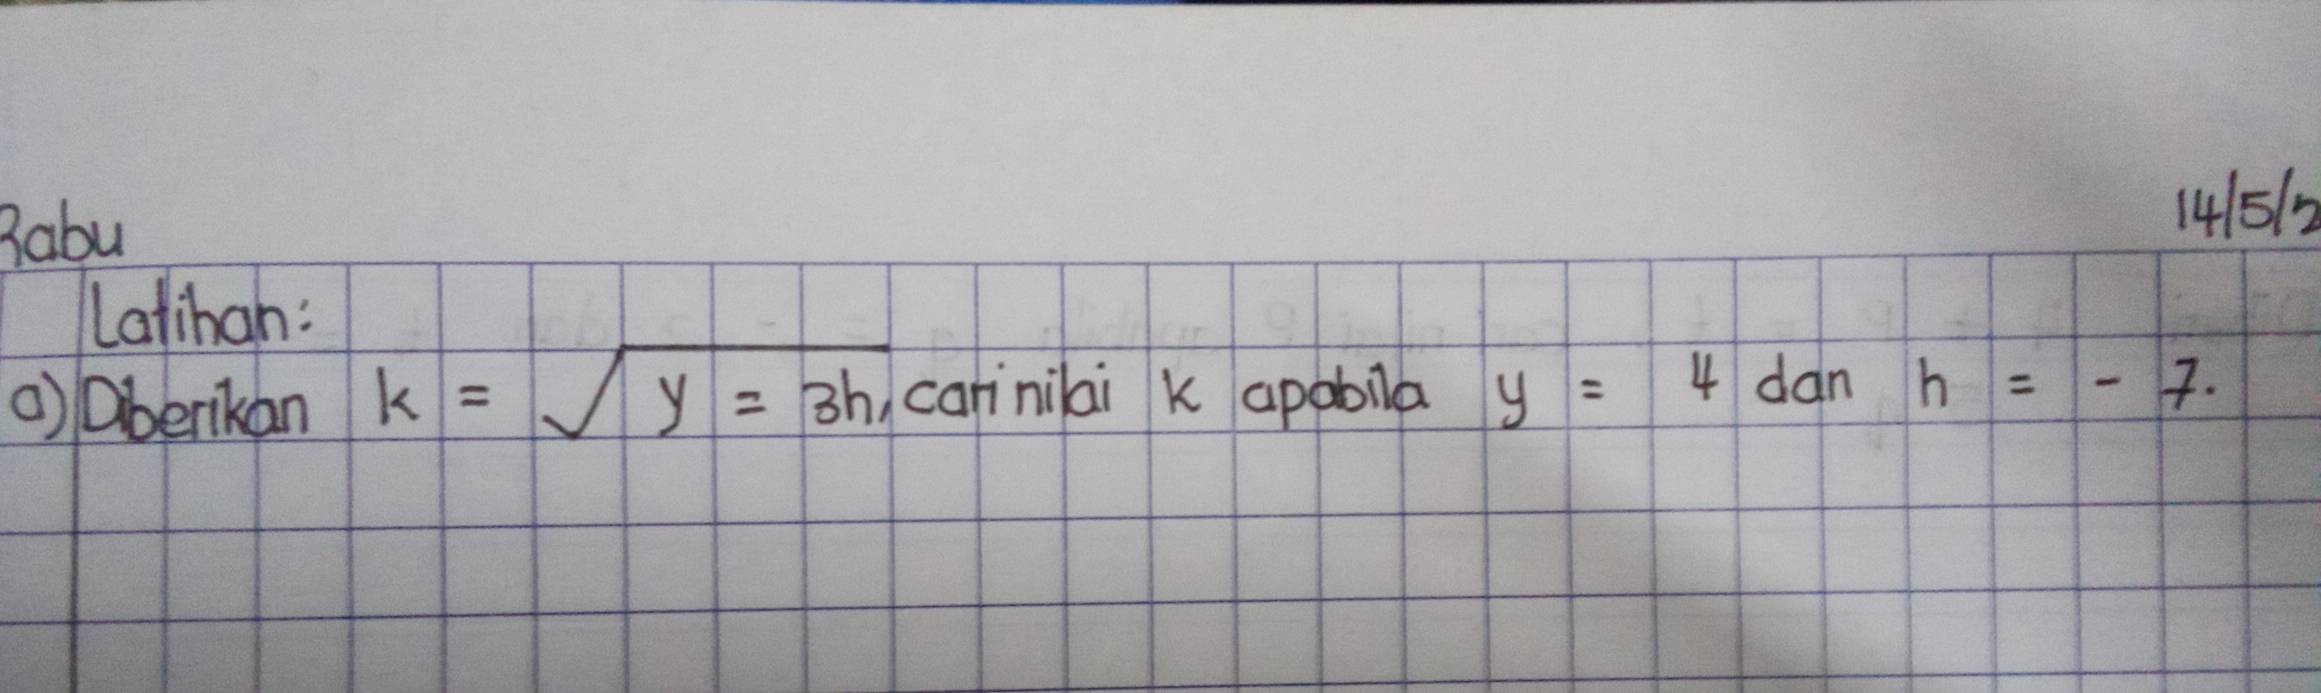 Rabu 14/5/2
Latihan:
a) Diberikan k = √y = 3h, cari nilai k apabila y = 4 dan h = - 7.